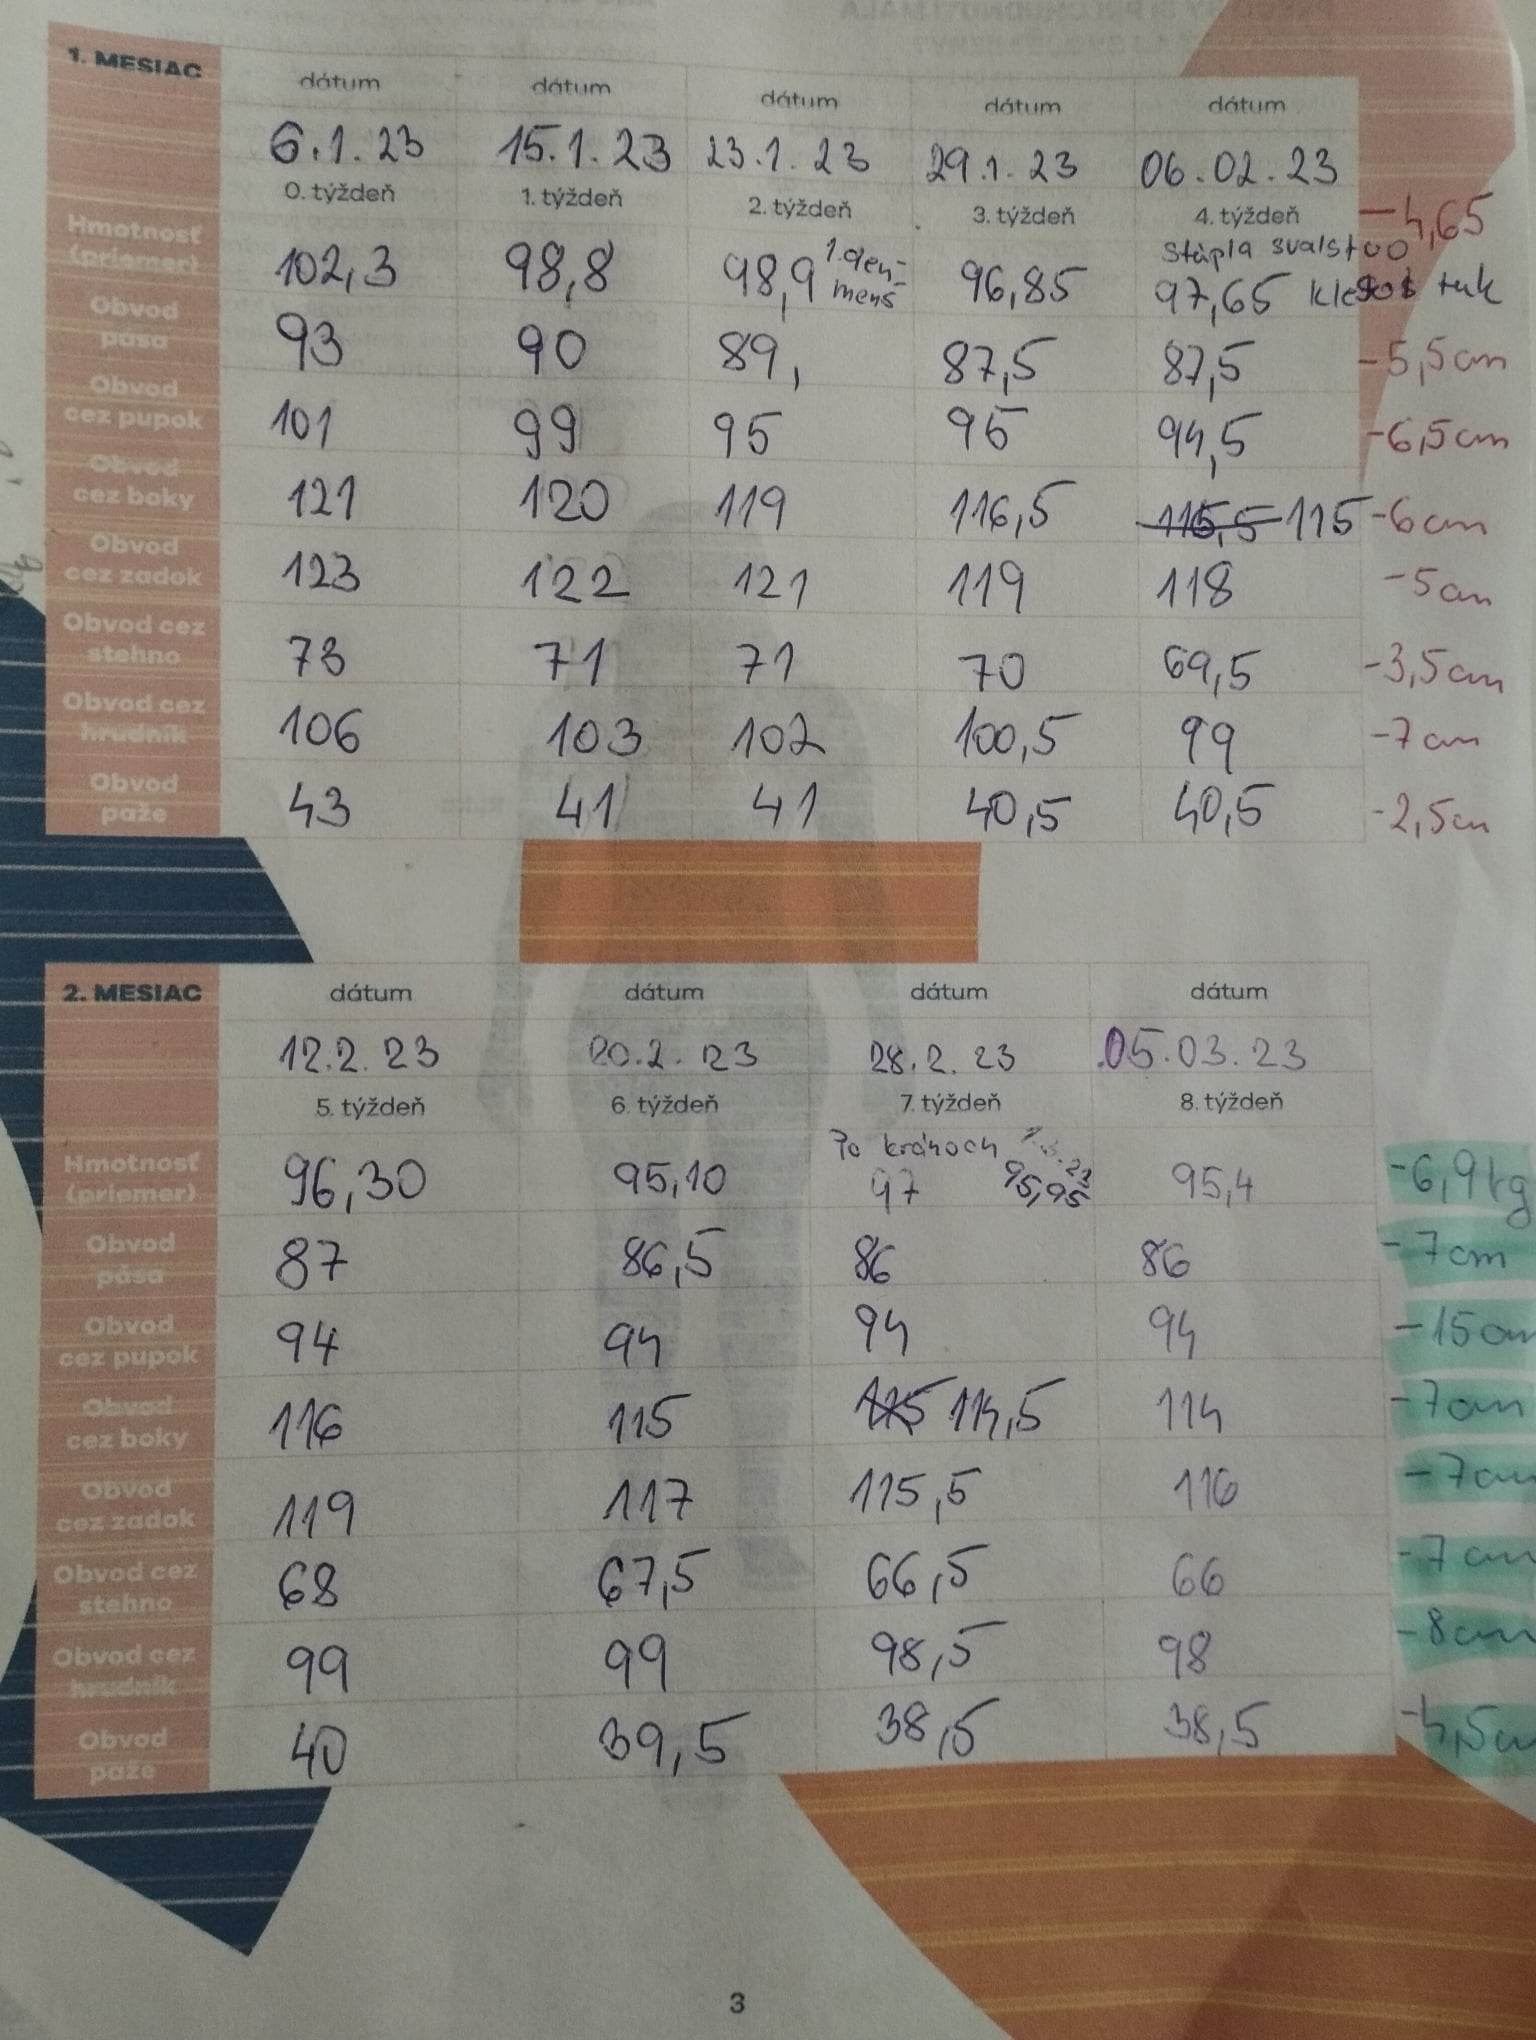 1. MESIAC dátum dátum dátum dátum dátum
6.1.23 15.1.23 23.1.23 29.1.23 06.02.23
0. týždeň 1. týždeň 2. týždeň 3. týždeň 4. týždeň
Hmotnosť (priemer) 102,3 98,8 98,9 1. deň menš 96,85 stúpla svalstvo 97,65 klesol tuk -4,65
Obvod pása 93 90 89, 87,5 87,5 -5,5cm
Obvod cez pupok 101 99 95 95 94,5 -6,5cm
Obvod cez boky 121 120 119 116,5 115,5 115 -6cm
Obvod cez zadok 123 122 121 119 118 -5cm
Obvod cez stehno 73 71 71 70 69,5 -3,5cm
Obvod cez hrudník 106 103 102 100,5 99 -7cm
Obvod paže 43 41 41 40,5 40,5 -2,5cm
2. MESIAC dátum dátum dátum dátum
12.2.23 20.2.23 28.2.23 05.03.23
5. týždeň 6. týždeň 7. týždeň 8. týždeň
Hmotnosť (priemer) 96,30 95,10 Po 97 95,95 95,4 -6,9kg
Obvod pása 87 86,5 86 86 -7cm
Obvod cez pupok 94 94 94 94 -15cm
Obvod cez boky 116 115 115 114,5 114 -7cm
Obvod cez zadok 119 117 115,5 116 -7cm
Obvod cez stehno 68 67,5 66,5 66 -7cm
Obvod cez hrudník 99 99 98,5 98 -8cm
Obvod paže 40 39,5 38,5 38,5 -4,5c
3